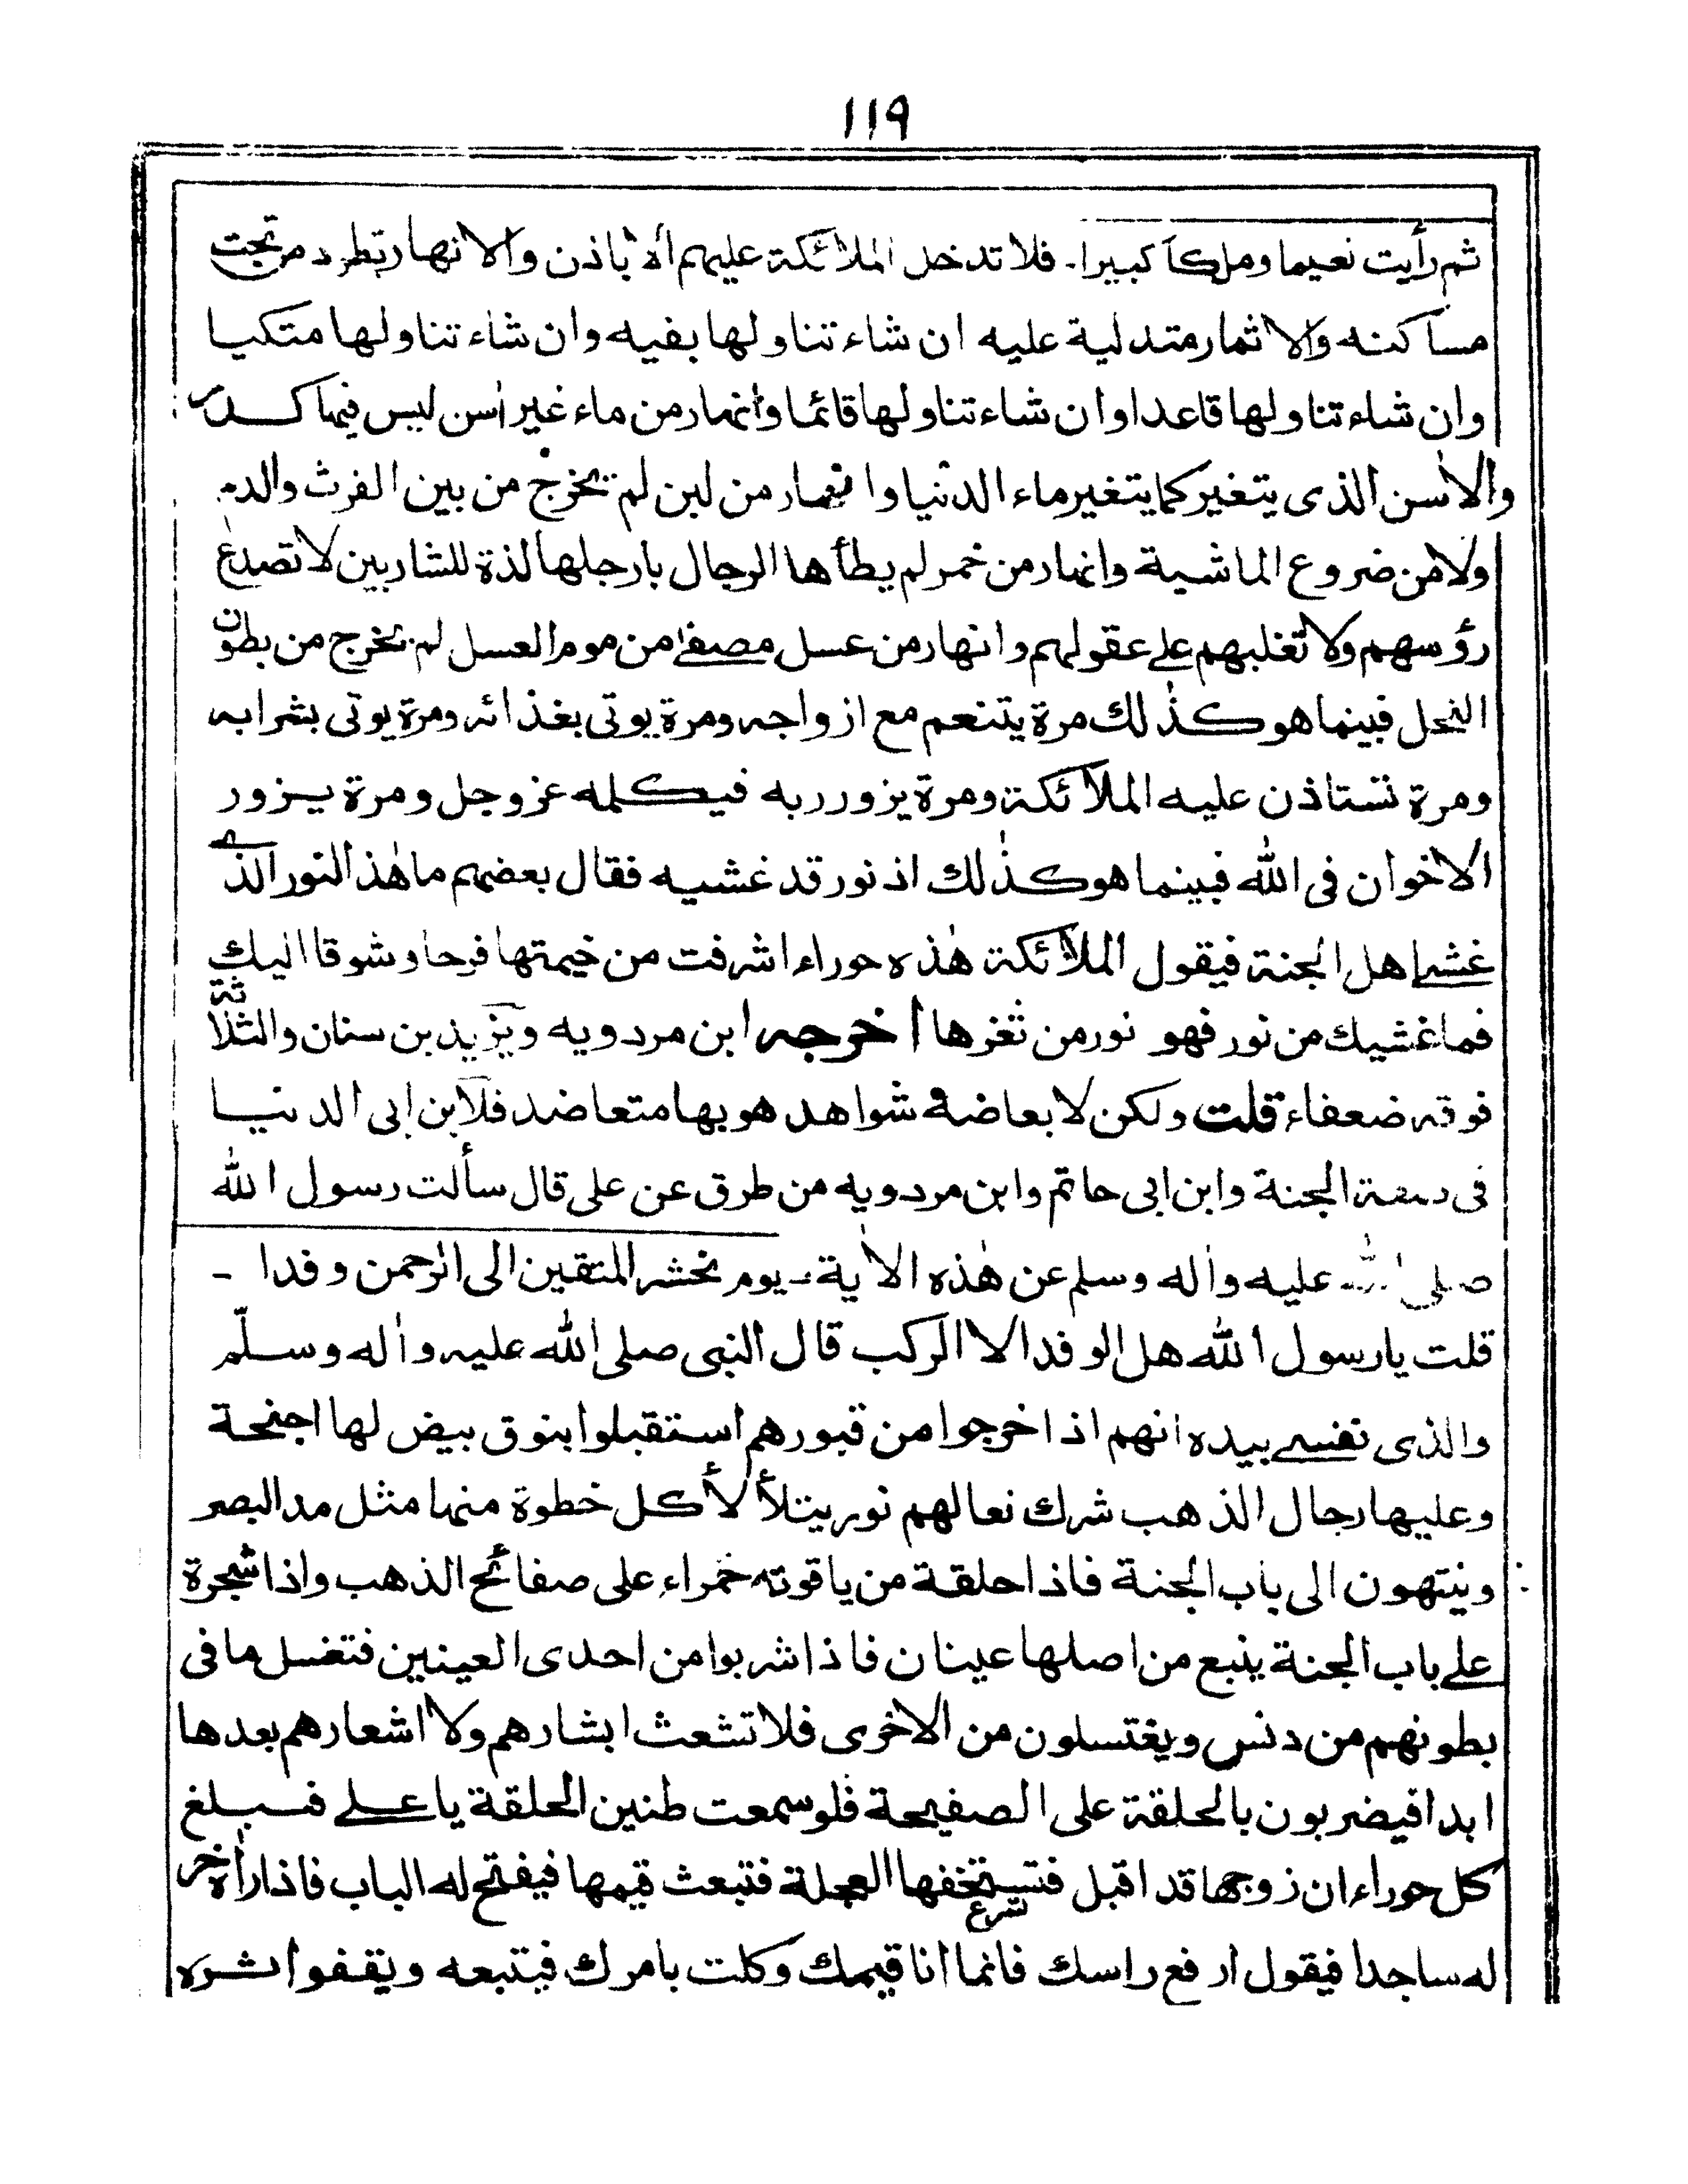 ١١٩
ثم رأيت نعيما وملكا كبيرا. فلا تدخل الملائكة عليهم الا باذن والانهار تطرد من تحت
مساكنه والاثمار متدلية عليه ان شاء تناولها بفيه وان شاء تناولها متكيا
وان شاء تناولها قاعدا وان شاء تناولها قائما وانهار من ماء غير اٰسن ليس فيها كدر
والاٰسن الذى يتغير كما يتغير ماء الدنيا وانهار من لبن لم تخرج من بين الفرث والدم
ولا من ضروع الماشية وانهار من خمر لم يطأها الرجال بارجلها لذة للشاربين لا تصدع
رؤسهم ولا تغلبهم على عقولهم وانهار من عسل مصفى من موم العسل لم تخرج من بطون
النحل فبينما هو كذٰلك مرة يتنعم مع ازواجه ومرة يوتى بغذائه ومرة يوتى بشرابه
ومرة تستاذن عليه الملائكة ومرة يزور ربه فيكلمه عز وجل ومرة يزور
الاخوان فى الله فبينما هو كذٰلك اذ نور قد غشيه فقال بعضهم ما هٰذ النور الذى
غشى اهل الجنة فيقول الملائكة هٰذه حوراء اشرفت من خيمتها فرحا وشوقا اليك
فما غشيك من نور فهو نور من ثغرها اخرجه ابن مردويه ويزيد بن سنان والثلاثة
فوقه ضعفاء قلت ولكن لابعاضه شواهد هو بها متعاضد فلابن ابى الدنيا
فى صفة الجنة وابن ابى حاتم وابن مردويه من طرق عن على قال سألت رسول الله
صلى الله عليه واٰله وسلم عن هٰذه الاٰية - يوم نحشر المتقين الى الرحمن وفدا -
قلت يا رسول الله هل الوفد الا الركب قال النبى صلى الله عليه واٰله وسلّم
والذى نفسى بيده انهم اذا خرجوا من قبورهم استقبلوا بنوق بيض لها اجنحة
وعليها رحال الذهب شرك نعالهم نور يتلألأ كل خطوة منها مثل مد البصر
وينتهون الى باب الجنة فاذا حلقة من ياقوته حمراء على صفائح الذهب واذا شجرة
على باب الجنة ينبع من اصلها عينان فاذا شربوا من احدى العينين فتغسل ما فى
بطونهم من دنس ويغتسلون من الاخرى فلا تشعث ابشارهم ولا اشعارهم بعدها
ابدا فيضربون بالحلقة على الصفيحة فلو سمعت طنين الحلقة يا على فيبلغ
كل حوراء ان زوجها قد اقبل فتستخفها العجلة فتبعث قيمها فيفتح له الباب فاذا راٰه خر
له ساجدا فيقول ارفع راسك فانما انا قيمك وكلت بامرك فيتبعه ويقفوا اثره